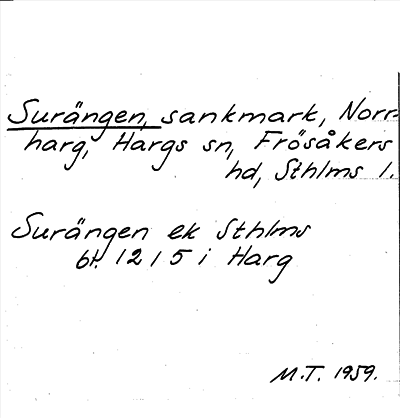 Surängen, sankmark, Norr-
harg, Hargs sn, Frösåkers
hd, Sthlms l.
Surängen ek Sthlms
bl. 1215 i Harg
M.T. 1959.